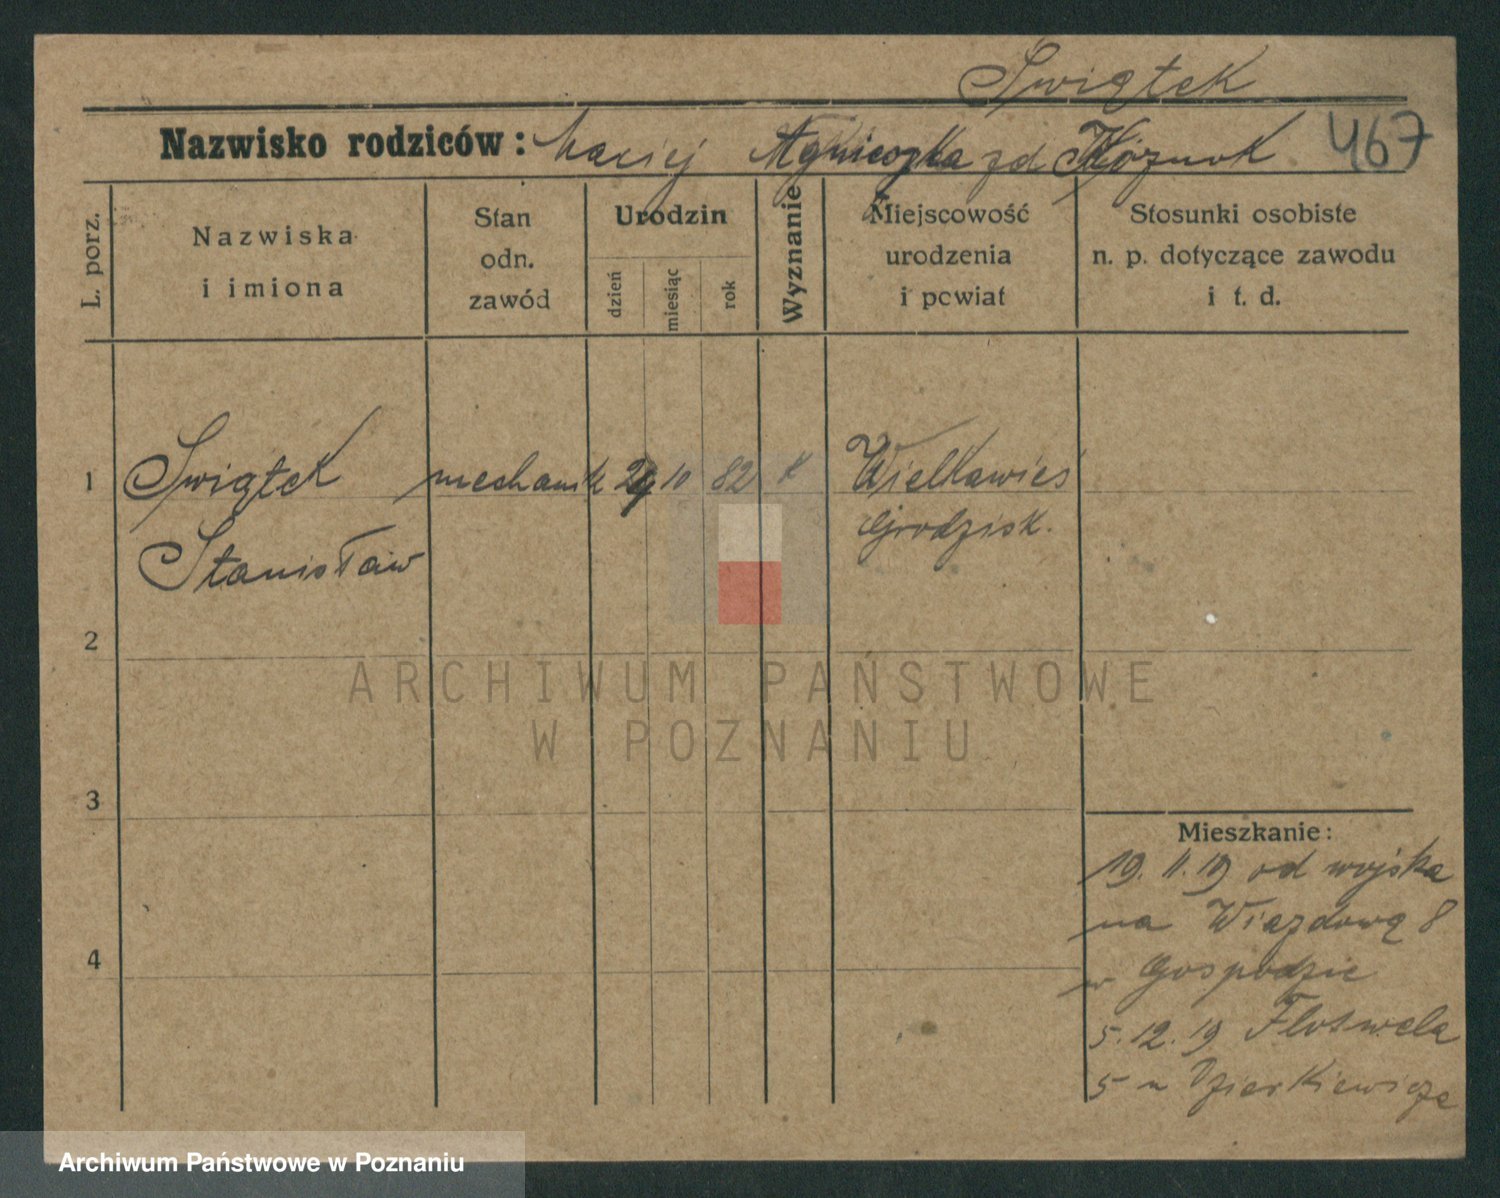 Swiątek
Nazwisko rodziców: Maciej Agnieszka zd 467
L. porz.
Nazwiska i imiona
Stan odn. zawód
Urodzin
dzień
miesiąc
rok
Wyznanie
Miejscowość urodzenia i powiat
Stosunki osobiste n. p. dotyczące zawodu i t. d.
1 Swiątek mechanik 29 10 82 k Wielkawieś
Stanisław Grodzisk.
2
3
4
Mieszkanie:
19. 11. 19 od wojska
na Wiazdową 8
w Gospodzie
5. 12. 19 Flotwela
5 u Dzierkiewicza
ARCHIWUM PAŃSTWOWE
W POZNANIU
Archiwum Państwowe w Poznaniu